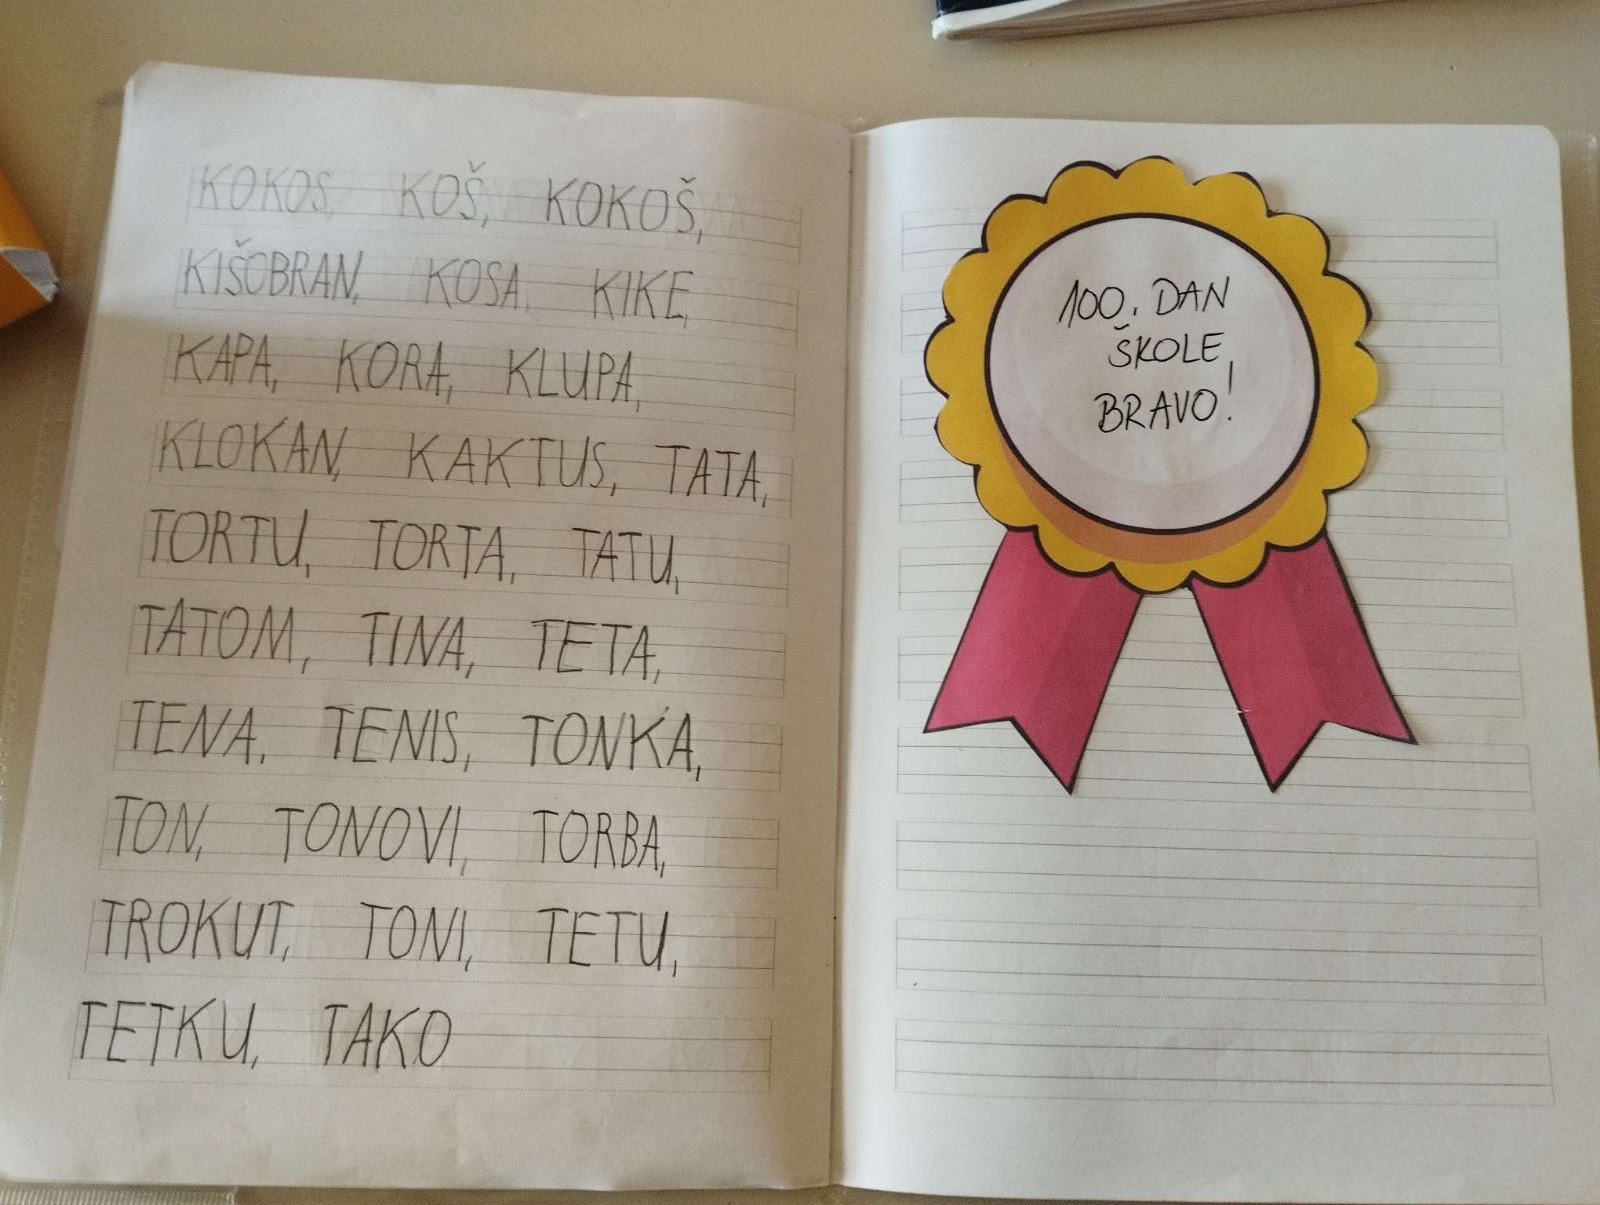 KOKOS, KOŠ, KOKOŠ,
KIŠOBRAN, KOSA, KIKE,
KAPA, KORA, KLUPA,
KLOKAN, KAKTUS, TATA,
TORTU, TORTA, TATU,
TATOM, TINA, TETA,
TENA, TENIS, TONKA,
TON, TONOVI, TORBA,
TROKUT, TONI, TETU,
TETKU, TAKO
100. DAN
ŠKOLE,
BRAVO!